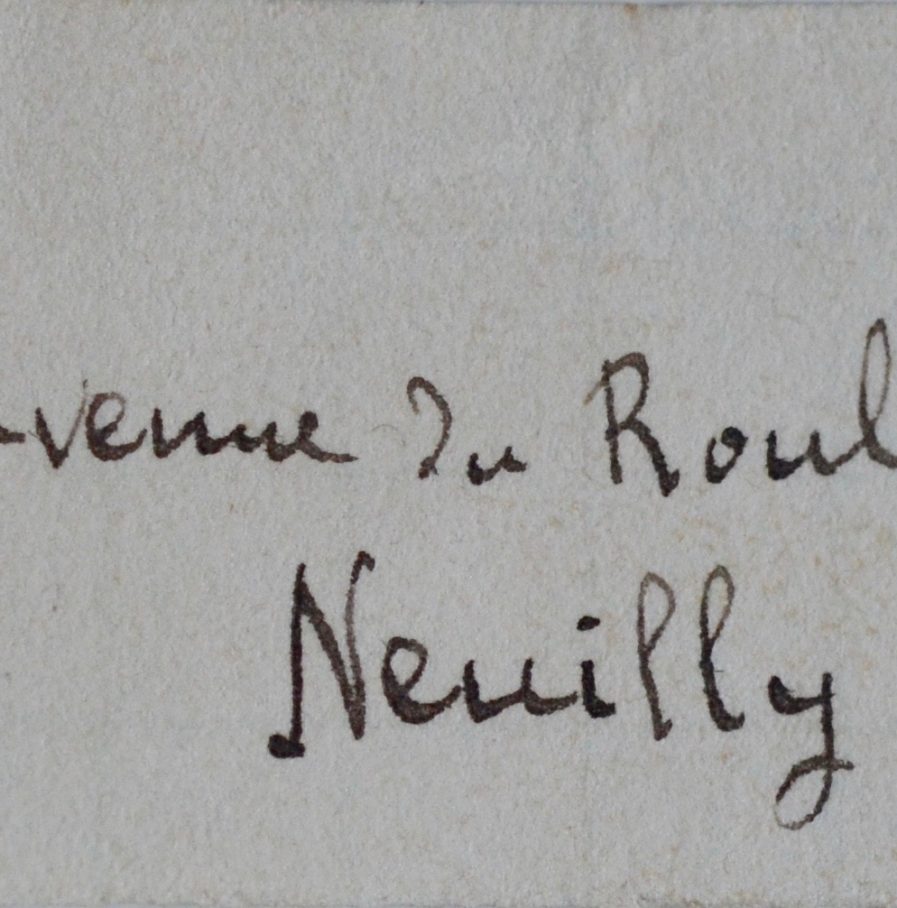 venue du Roul
Neuilly